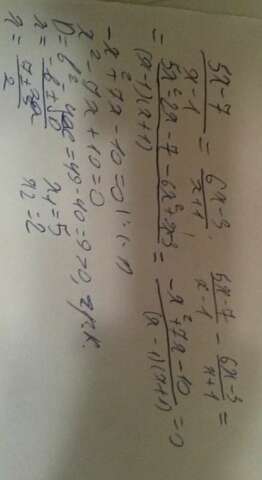 (5x-7)/(x-1) = (6x-3)/(x+1). (5x-7)/(x-1) - (6x-3)/(x+1) =
= (5x²-2x-7-6x²+9x-3)/((x-1)(x+1)) = (-x²+7x-10)/((x-1)(x+1)) = 0
-x²+7x-10=0 | :(-1)
x²-7x+10=0
D=b²-4ac=49-40=9>0, 2р.к.
x₁=5
x= (7±3)/2 x₂=2